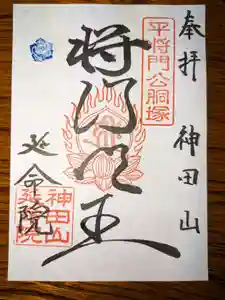 奉拝 神田山
平将門公胴塚
将門明王
延命院
神田山